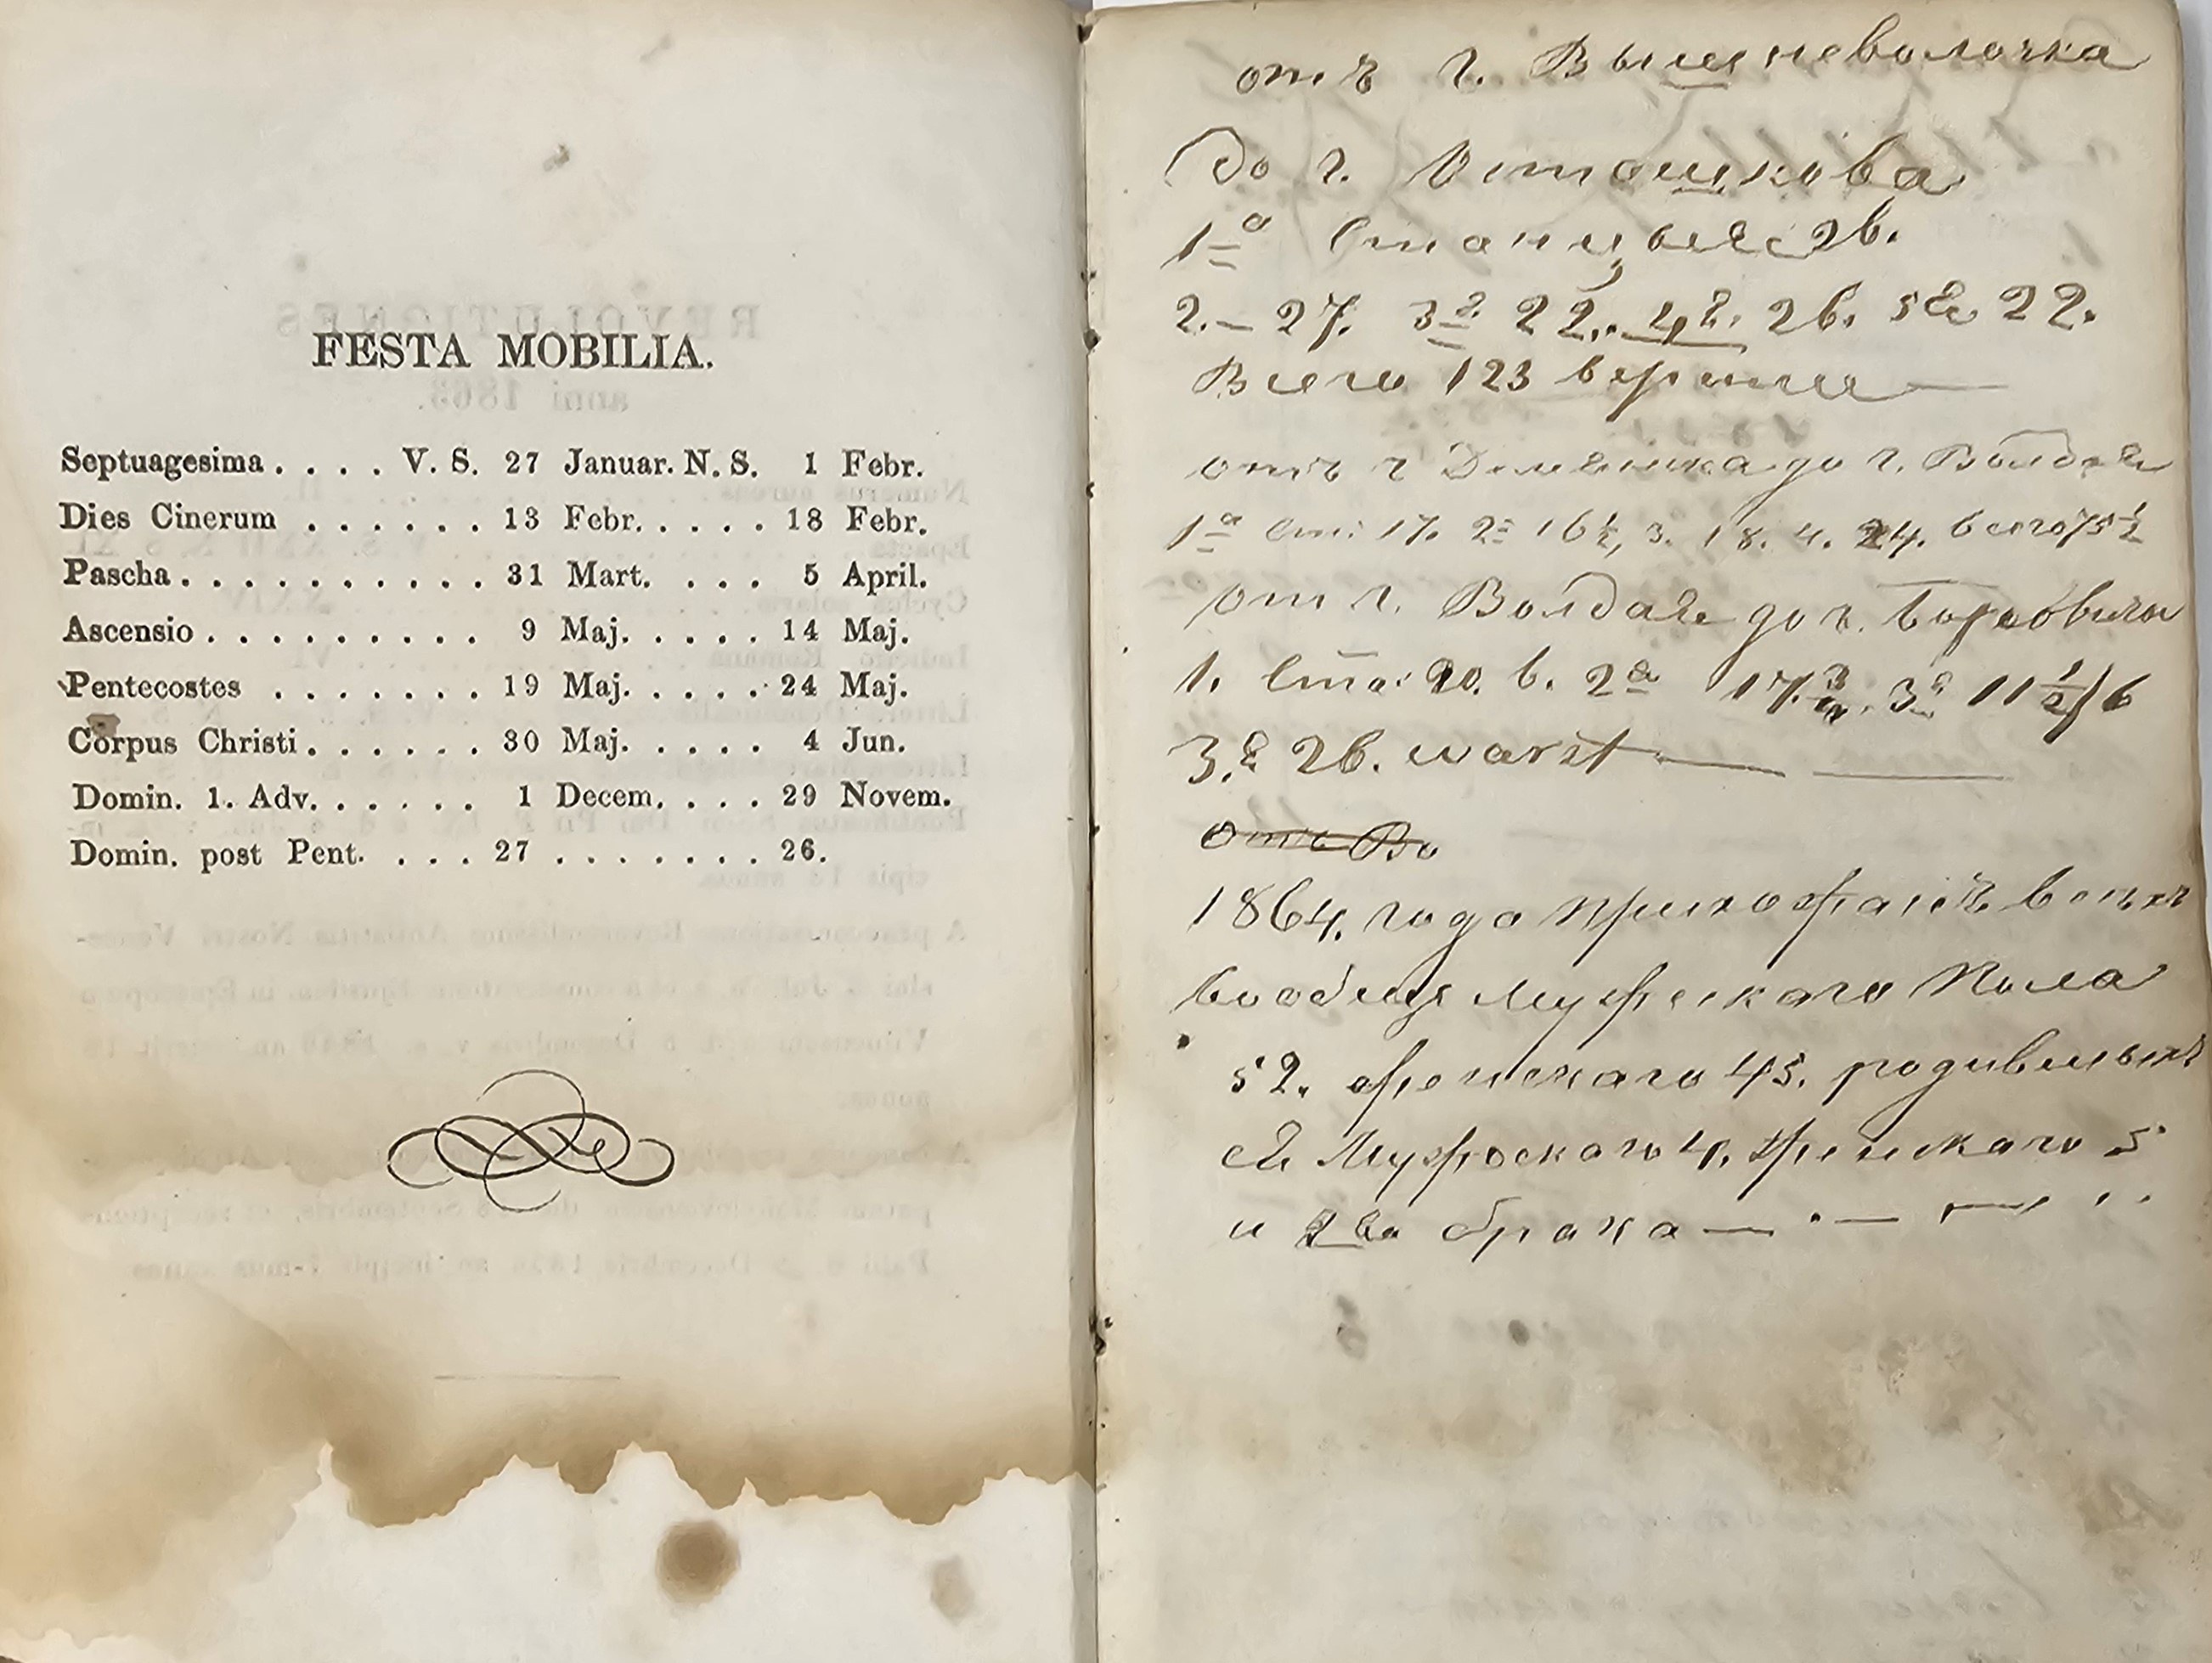 FESTA MOBILIA.
Septuagesima . . . . V. S. 27 Januar. N. S. 1 Febr.
Dies Cinerum . . . . . . 13 Febr. . . . . 18 Febr.
Pascha . . . . . . . . . . 31 Mart. . . . 5 April.
Ascensio . . . . . . . . . 9 Maj. . . . . 14 Maj.
Pentecostes . . . . . . . 19 Maj. . . . . 24 Maj.
Corpus Christi . . . . . . 30 Maj. . . . . 4 Jun.
Domin. 1. Adv. . . . . . . 1 Decem. . . . 29 Novem.
Domin. post Pent. . . . 27 . . . . . . . . 26.
отъ г. Вышневолочка
до г. Осташкова
1а 26.
2.— 27. 3я 22. 4я. 26. 5я 22.
Всего 123 верст
отъ г до г. Волдая
1а ст: 17. 2я 16 1/2, 3. 18. 4. 24. всего 75 1/2
от г. Волдая до г. Боровичи
1. 20. в. 2я 17. 3/4. 3я 11 1/2
3.я 26. warst
отъ Во
1864. года прихожанъ всехъ
вообще Мужескаго Пола
52. женскаго 45. родившихъ
ся Мужескаго 4. женскаго 5
и 2ва брака